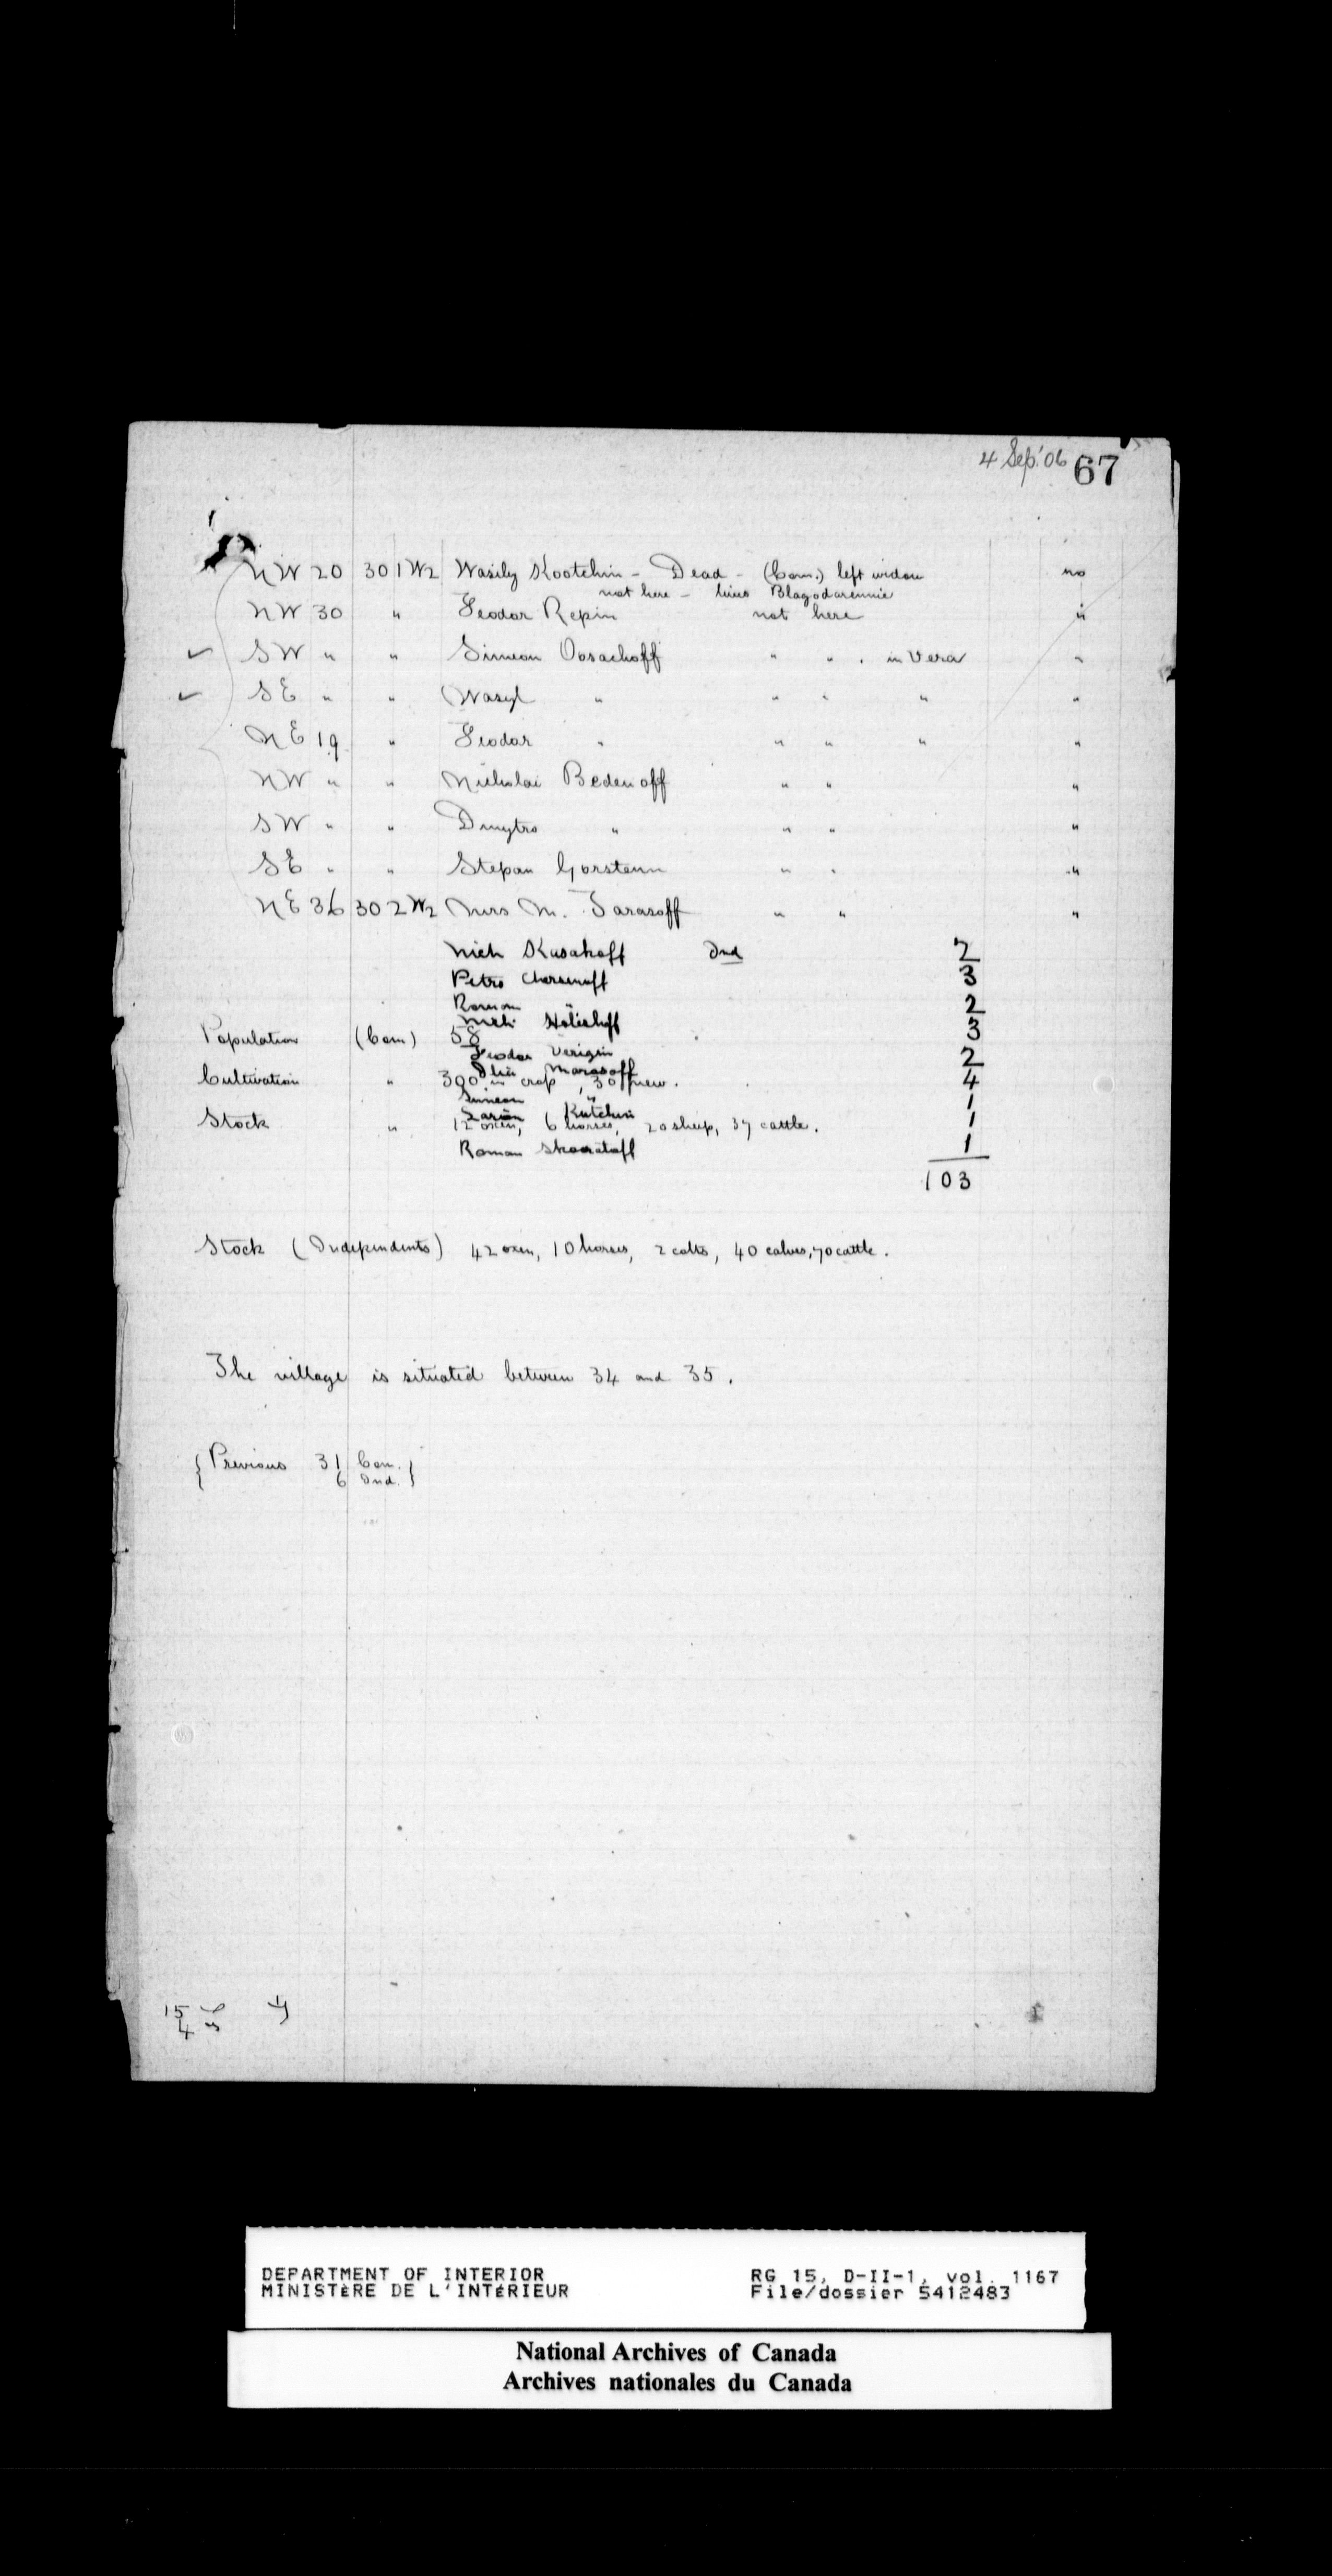 4 Sep.'06 67
NW 20 30 1 W2 Wasily Kootchin - Dead - (Com.) left widow no
not here - lives Blagodarennie
NW 30 " Feodor Repin not here "
SW " " Simeon Oosachoff " " . in Vera "
SE " " Wasyl " " " " "
NE 19 " Feodor " " " " "
NW " " Nicholai Bedenoff " " "
SW " " Dmytro " " " "
SE " " Stepan Gorstenin " " "
NE 36 30 2 W2 Mrs M. Tarasoff " " "
Nich Kusakoff Ind 2
Petro Chernenoff 3
Roman " 2
Nich Holishoff 3
Population (Com) 58
Feodor Verigin 2
Ilia Morosoff 4
Cultivation " 300 in crop, 30 new.
Simeon " 1
Larion Kutchin 1
Stock " 12 oxen, 6 horses, 20 sheep, 37 cattle.
Roman Skooratoff 1
103
Stock (Independents) 42 oxen, 10 horses, 2 colts, 40 calves, 70 cattle.
The village is situated between 34 and 35.
{Previous 31 Com.}
6 Ind.
15
4
DEPARTMENT OF INTERIOR RG 15, D-II-1, vol. 1167
MINISTÈRE DE L'INTÉRIEUR File/dossier 5412483
National Archives of Canada
Archives nationales du Canada